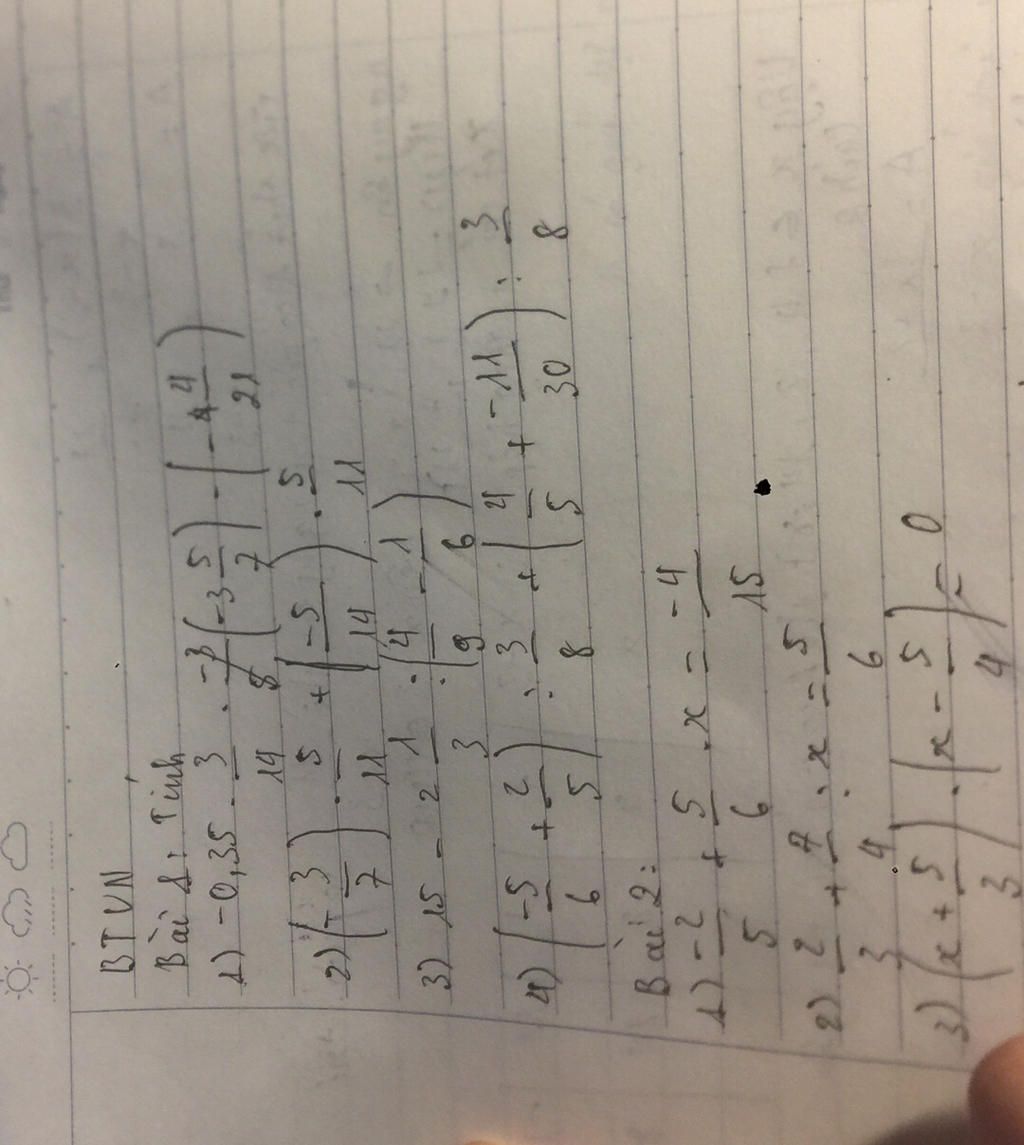 BTVN
Bài 1: Tính
1) -0,35 . 3/14 . -3/8 (-3 5/7) - (-4/21)
2) (-3/7) . 5/11 + (-5/14) . 5/11
3) 15 - 2 1/3 : (4/9 - 1/6)
4) (-5/6 + 2/5) : 3/8 + (4/5 + -11/30) : 3/8
Bài 2:
1) -2/5 + 5/6 . x = -4/15
2) 2/3 + 7/4 : x = 5/6
3) (x + 5/3) . (x - 5/4) = 0